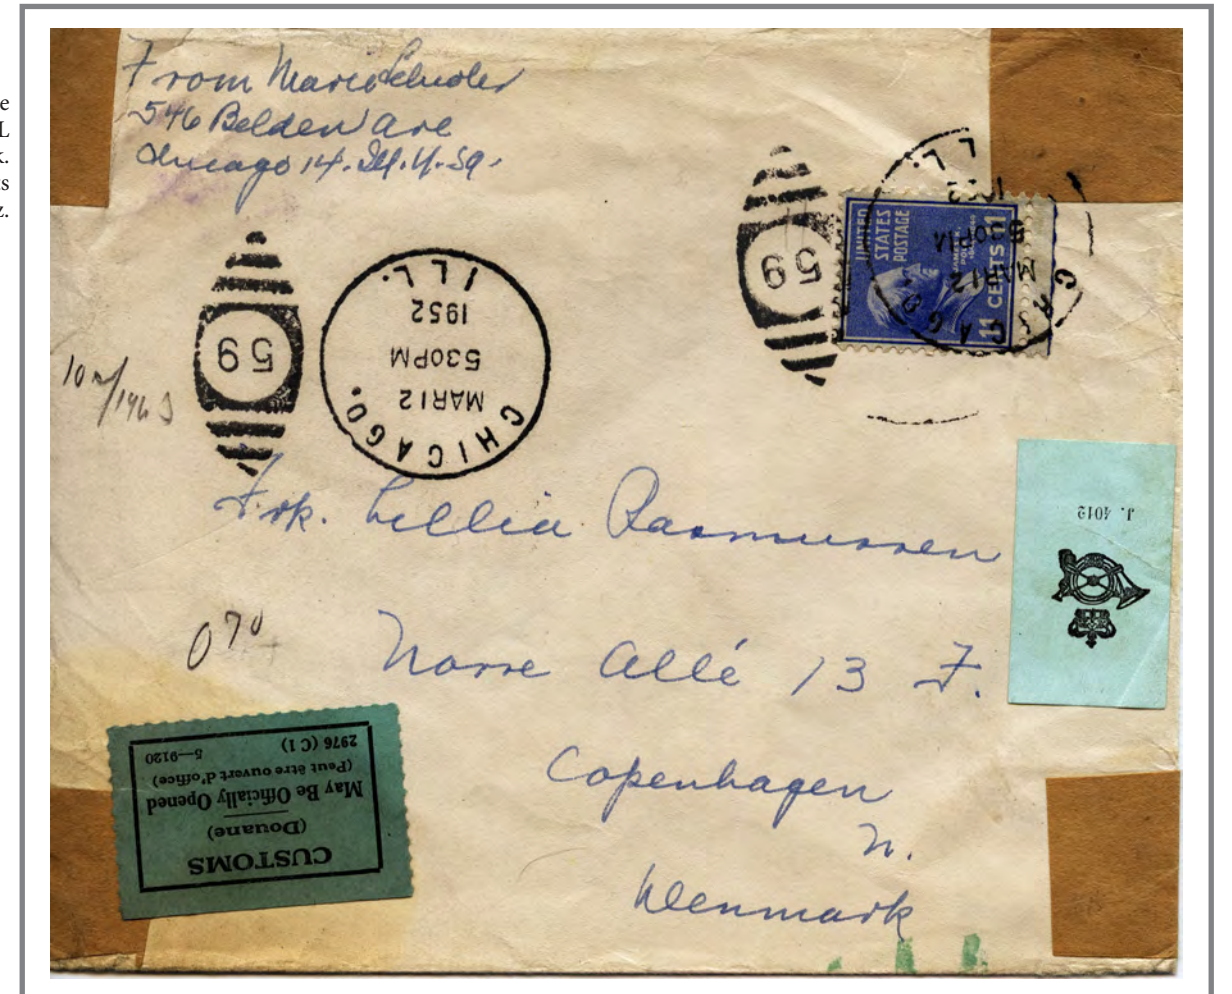 e
L
k.
ts
z.
From Marie
546 Belden Ave
Chicago 14. Ill. U. S. a.
UNITED STATES POSTAGE
11 CENTS 11
CHICAGO.
MAR 12
5 30 PM
1952
ILL.
59
CHICAGO
MAR 12
5 30 PM
1952
ILL.
59
Frk. Lillia Rasmussen
J. 4012
070
Norre Allé 13 F.
Copenhagen
N.
Denmark
CUSTOMS
(Douane)
May Be Officially Opened
(Peut être ouvert d'office)
2976 (C 1) 5—9120